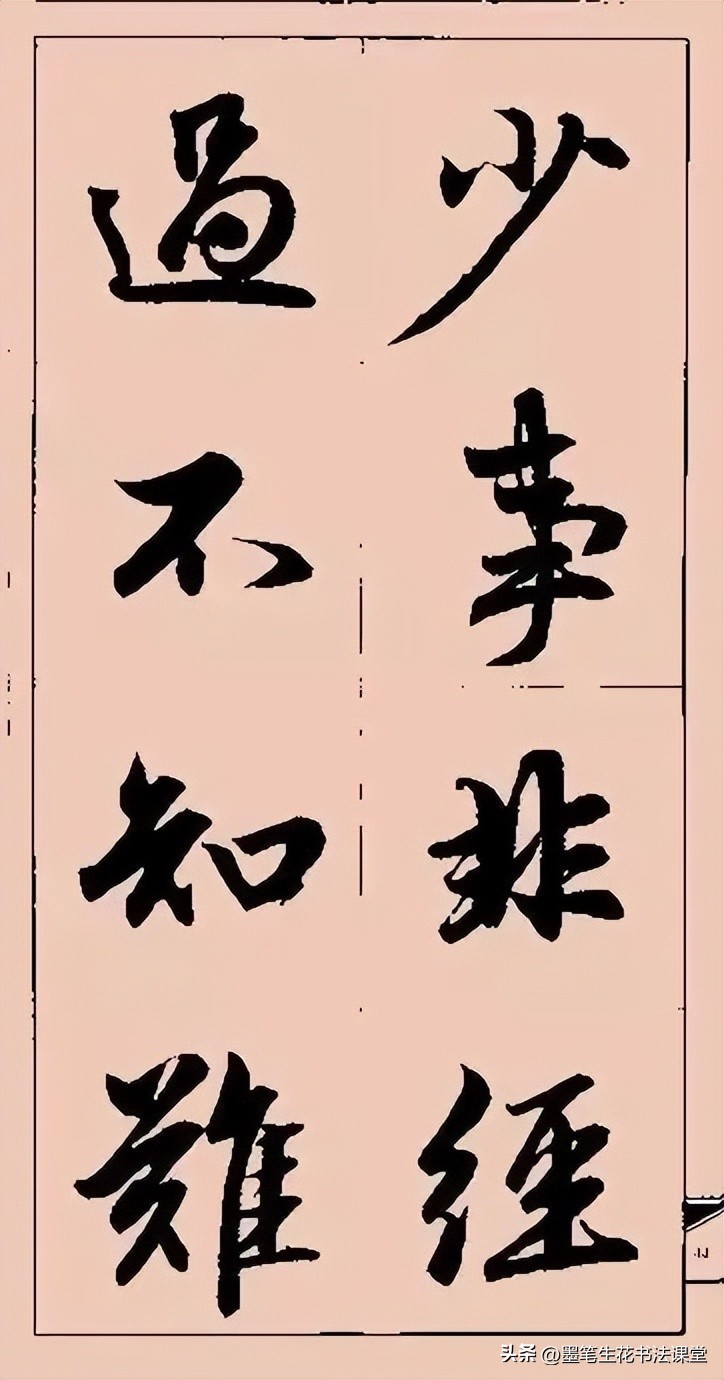 少事非經
過不知難
头条 @墨笔生花书法课堂